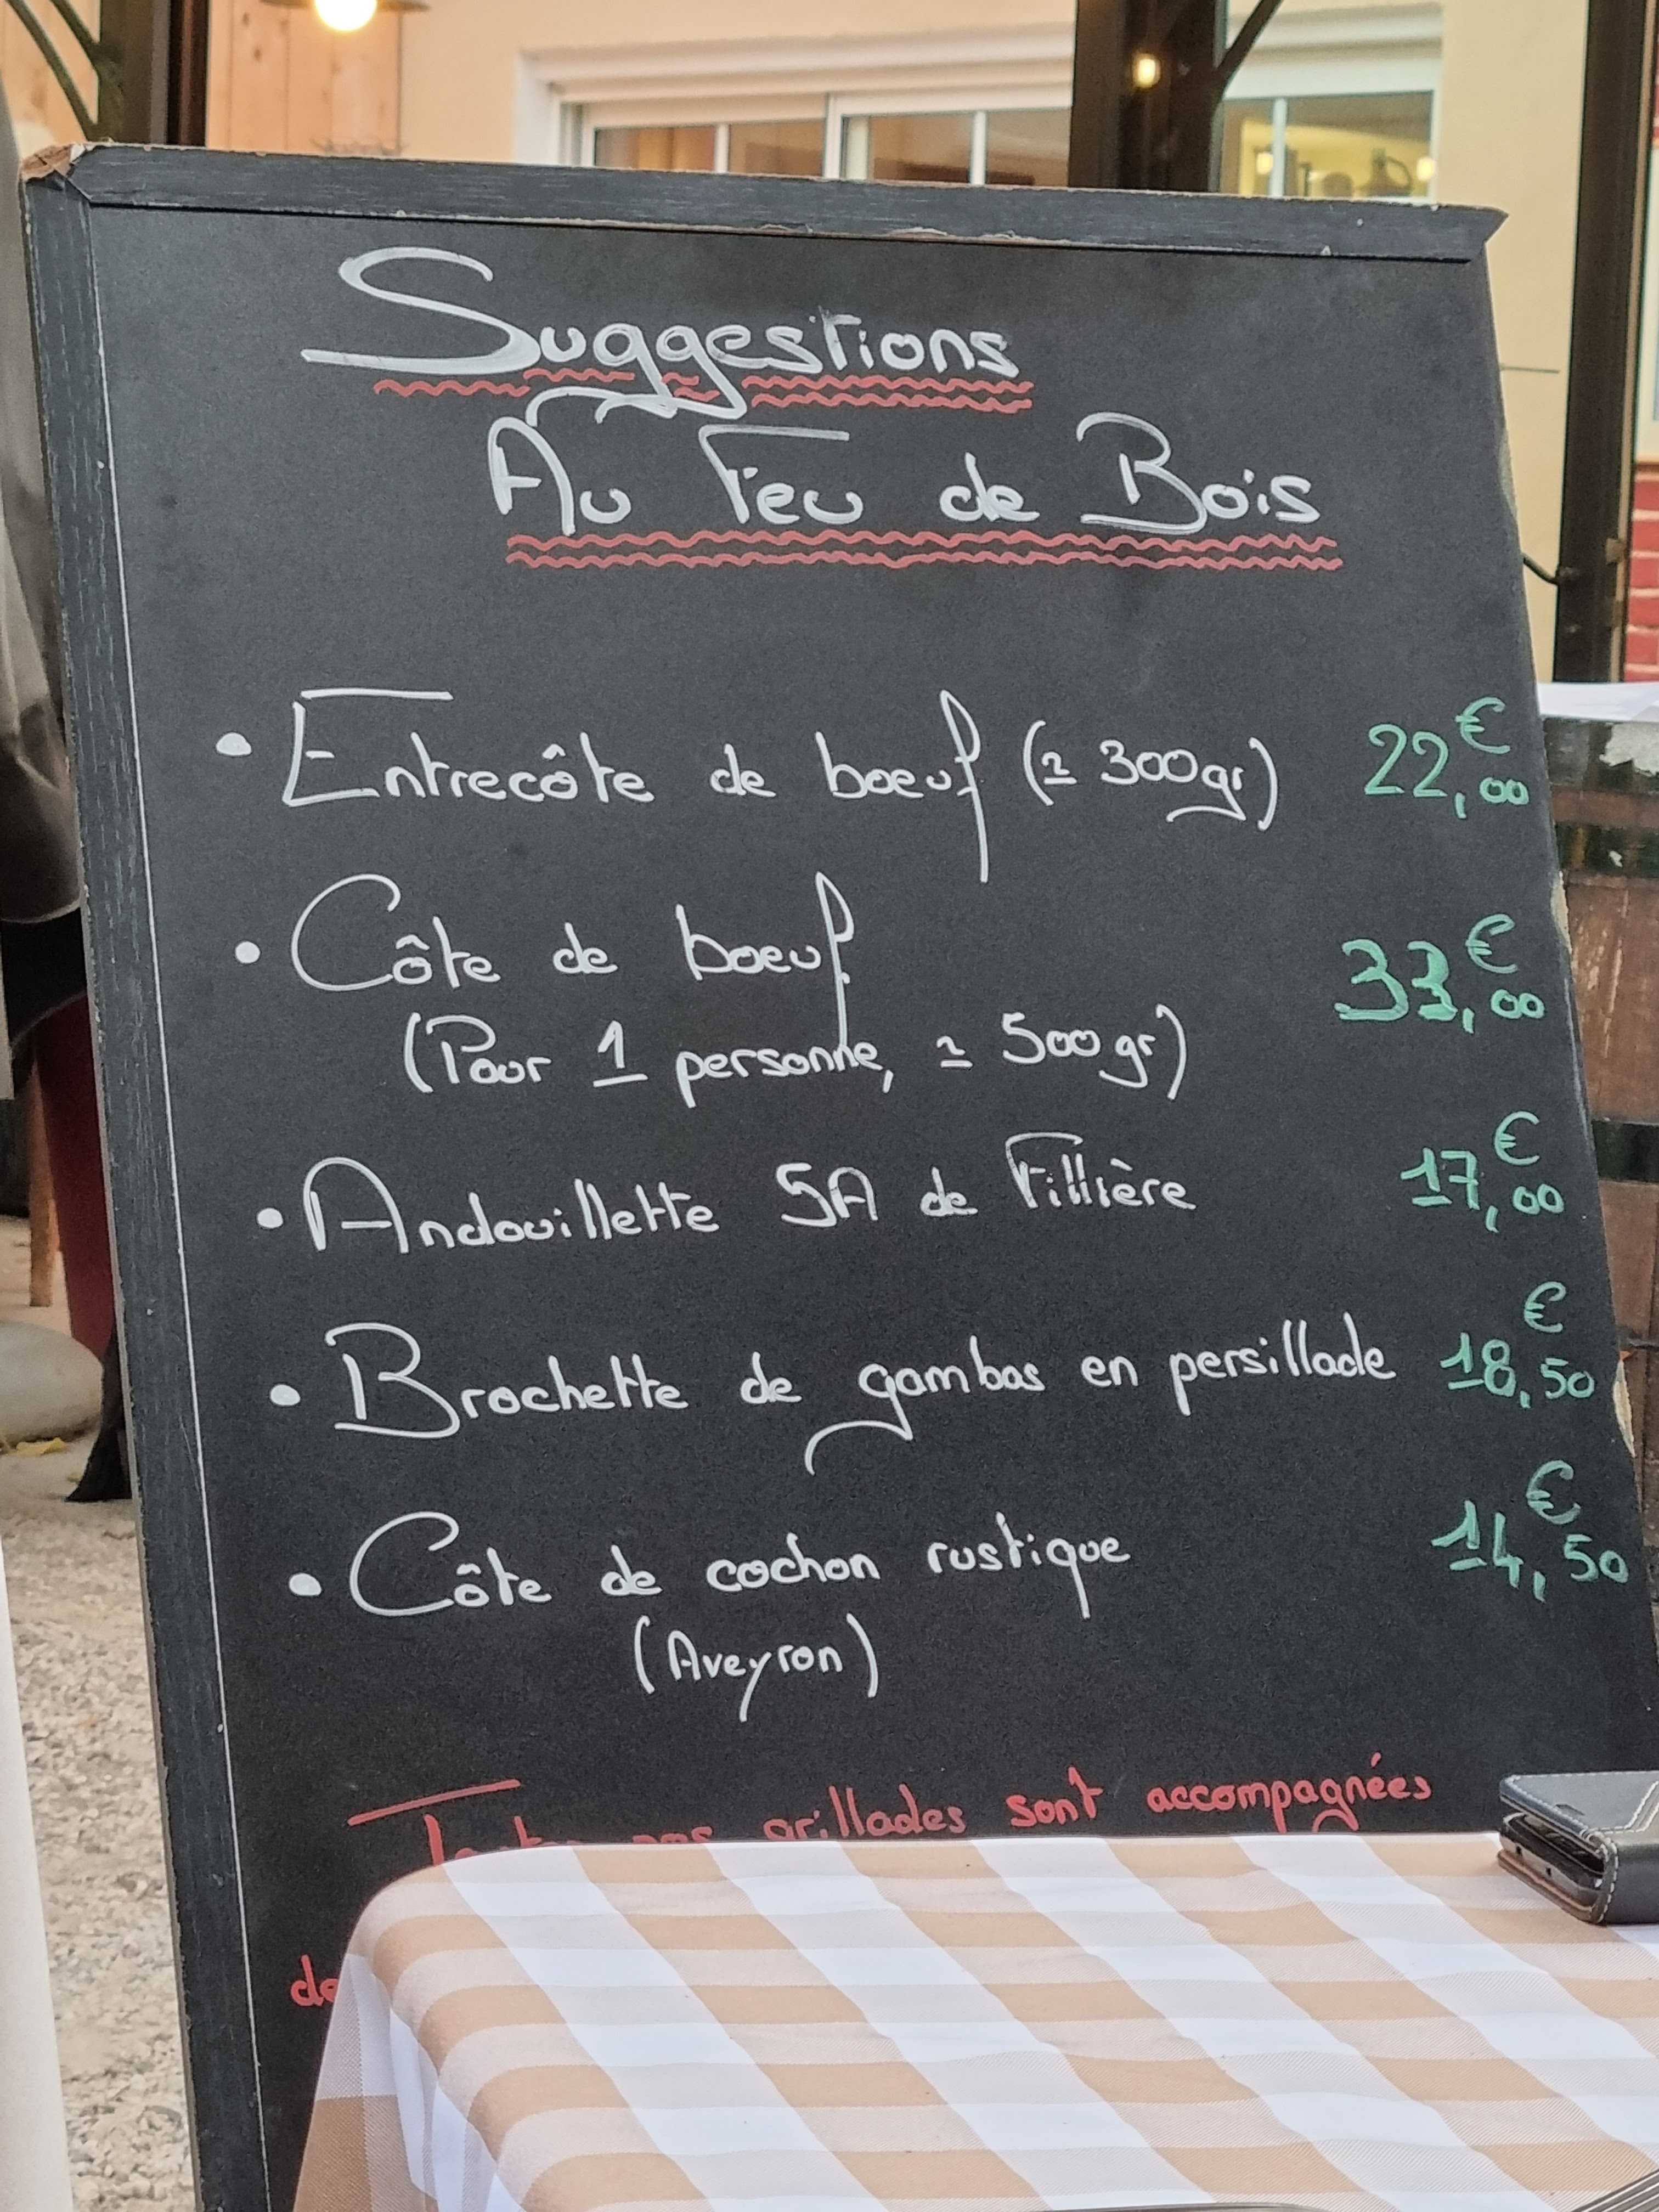 Suggestions
Au Feu de Bois
• Entrecôte de boeuf (≃ 300gr) 22,00€
• Côte de boeuf 33,00€
(Pour 1 personne, ≃ 500gr)
• Andouillette 5A de Fillière 17,00€
• Brochette de gambas en persillade 18,50€
• Côte de cochon rustique 14,50€
(Aveyron)
nos grillades sont accompagnées
de